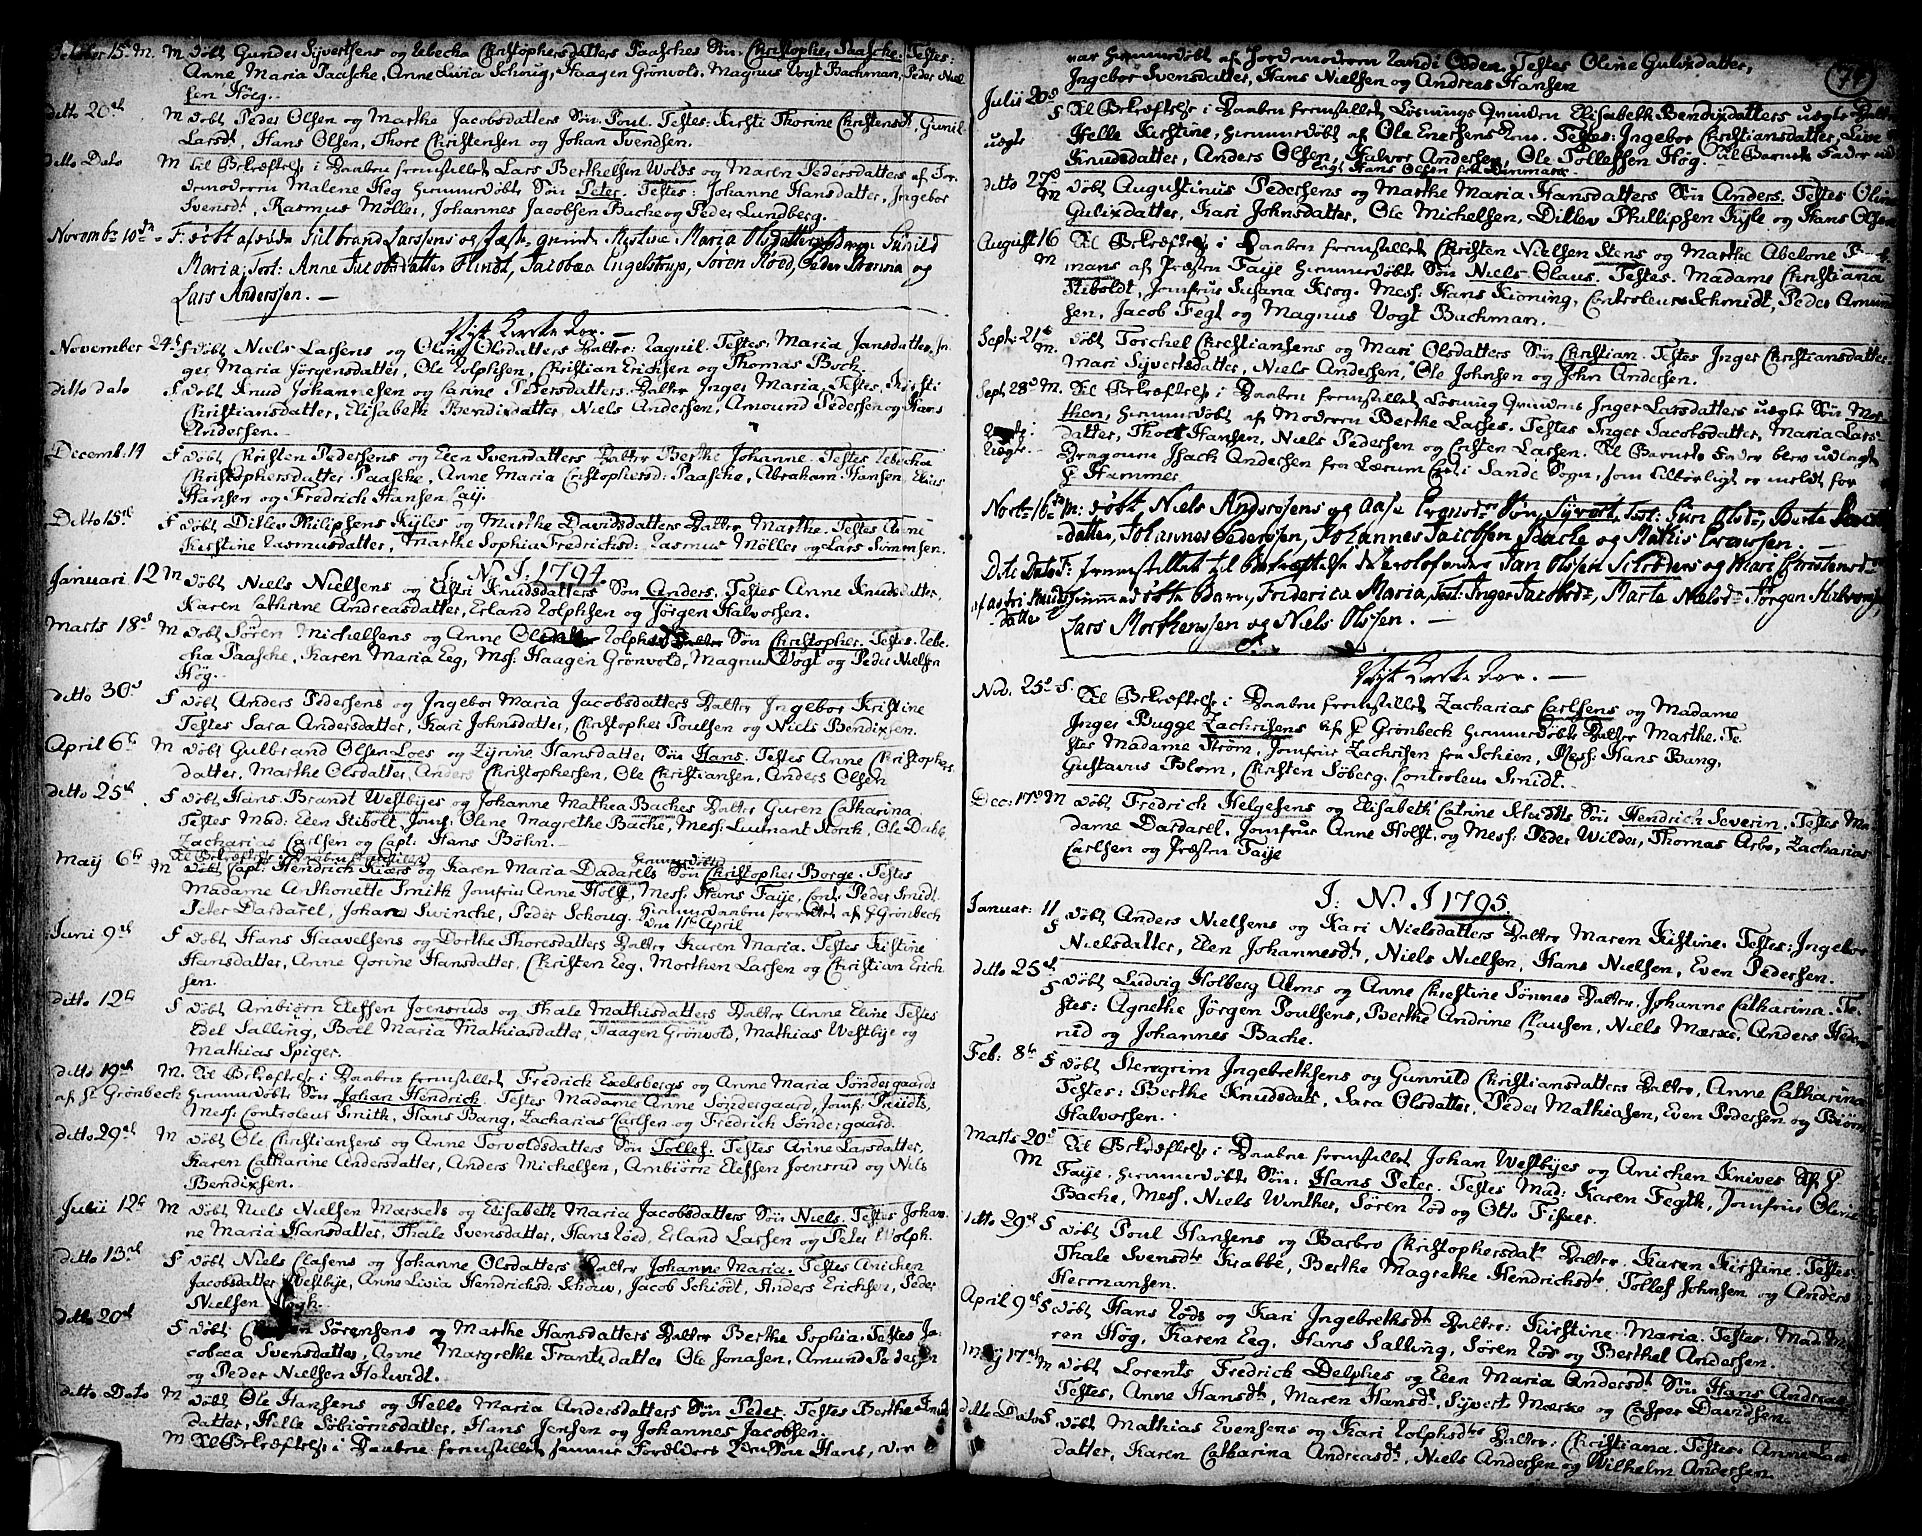 October 15de M. døbt Gunder Syvertsens og Rebecka Christophersdatters Paasches Søn Christopher Paasche. Testes:
Anne Maria Paasche, Anne Livia Schoug, Haagen Grønvold, Magnus Vogt Bachman, Peder Niel
sen Høeg.
ditto 20de M døbt Peder Olsen og Marthe Jacobsdatters Søn Poul. Testes: Kirsti Thorine Christensdt, Gunil
Larsdt, Hans Olsen, Thore Christensen og Johan Svendsen.
ditto Dato M til Bekræftelse i Daaben fremstillet Lars Berthelsen Wolds og Maren Pedersdatters af Jor
demoderen Malene Høg hiemmedøbte Søn Peter. Testes: Johanne Hansdatter, Ingebor
Svensdt, Rasmus Møller, Johannes Jacobsen Bache og Peder Lundberg.
Novembr 10de F: døbt Hilbrand Larssens og Maria Olsdatters Gunild
Maria; Test: Anne Jacobsdatter Flindt, Jacobæa Engelstrup, Søren Røed, Peder Brenna og
Lars Anderssen. —
Nyt Kirke Aar. —
November 24de F døbt Niels Lassens og Oline Olsdatters Datter: Ragnil. Testes: Maria Jansdatter, In
ger Maria Jørgensdatter, Ole Rolphsen, Christian Erichsen og Thomas Boch.
ditto dato F døbt Knud Johannesen og Carine Pedersdatters Datter Inger Maria. Testes Kirsti
Christiansdatter, Elisabeth Bendixdatter, Niels Andersen, Amound Pedersen og Hans
Andersen.
Decemb. 14 F døbt Christen Pedersens og Elen Svensdatters Datter Berthe Johanne. Testes Rebecha
Christophersdatter Paasche, Anne Maria Cristophersd: Paasche, Abraham Hansen, Elias
Hansen og Fredrich Hansen Caij.
Ditto 15de F døbt Ditlev Philipsens Kyles og Marthe Davidsdatters Datter Marthe. Testes Anne
Kirstine Rasmusdatter, Marthe Sophia Fredrichsd: Rasmus Møller og Lars Simonsen.
I. N. J. 1794
Januari 12 M døbt Niels Nielsens og Astri Knudsdatters Søn Anders. Testes Anne Knudsdatter,
Karen Cathrine Andreasdatter, Erland Rolphsen og Jørgen Halvorsen.
Marts 18de M døbt Søren Michelsens og Anne Rolphs Søn Christopher. Testes Rebe
cha Paasche, Karen Maria Eeg, Mess: Haagen Grønvold, Magnus Vogt og Peder Nielsen
Høg.
ditto 30d F døbt Anders Pedersens og Ingebor Maria Jacobsdatters Datter Ingebor Kirstine
Testes Sara Andersdatter, Kari Johnsdatter, Christopher Poulsen og Niels Bendixsen.
April 6te M døbt Gulbrand Olsen Loes og Zyrine Hansdatter Søn Hans. Testes Anne Christophers
datter, Marthe Olsdatter, Anders Christophersen, Ole Christiansen, Anders Olsen
ditto 25de F døbt Hans Brandt Westbyes og Johanne Mathea Baches Datter Guren Catharina
Testes Mad: Elen Stibolt, Jomf: Oline Magrethe Bache, Mess: Lieutnant Storck, Ole Dahl,
Zacharias Carlsen og Capt. Hans Bøhn.
til Bekræftelse i Daaben fremstillet
May 6te M døbt Capt: Hendrich Kiærs og Karen Maria Dadarels hiemmedøbte Søn Christopher Borge. Testes
Madame Anthonette Smith Jomfrue Anne Holst, Mess: Hans Faije, Contr Peder Smidt
Peter Dardarel, Johan Swincke, Peder Schoug. hiemmedaaben forrettet af H Grønbech
den 11te April
Juni 9de F døbt Hans Haavelsens og Dorthe Thoresdatters Datter Karen Maria. Testes Kistine
Hansdatter, Anne Gorine Hansdatter, Christen Eeg, Morthen Larsen og Christian Erich
sen.
ditto 12te F døbt Ambiørn Elefsen Joensruds og Thale Mathisdatters Datter Anne Eline Testes
Edel Salling, Boel Maria Mathiasdatter, Haagen Grønvold, Mathias Westbije og
Mathias Spiger.
ditto 19de M. til Bekræftelse i Daaben fremstillet Fredrich Exelsbergs og Anne Maria Søndergaards
af H Grønbeck hiemmedøbte Søn Johan Hendrich. Testes Madame Anne Søndergaard, Jomf: Paludts,
Mess: Controleur Smith, Hans Bang, Zacharias Carlsen og Fredrich Søndergaard.
ditto 29de M døbt Ole Christiansens og Anne Torvoldsdatters Søn Tollef. Testes Arine Larsdatter,
Karen Catharine Andersdatter, Anders Michelsen, Ambiørn Elefsen Joensrud og Nils
Bendixsen.
Julii 12te M døbt Niels Nielsen Mærsets og Elisabeth Maria Jacobsdatters Søn Niels. Testes Johan
ne Maria Hansdatter, Thale Svensdatter, Hans Røed, Erland Larsen og Peter Wolph.
ditto 13de F døbt Niels Clasens og Johanne Olsdatters Datter Johanne Maria. Testes Anichen
Jacobsdatter Westbije, Anne Livia Hendrichsd: Schouw, Jacob Schiødt, Anders Erichsen, Peder
Nielsen Høgh.
ditto 20de F døbt Sørensens og Marthe Hansdatters Datter Berthe Sophia. Testes Ja
cobæa Svensdatter, Anne Margrethe Frantsdatter Ole Jonasen, Amund Pedersen
og Peder Nielsen Holwidt.
ditto Dato M døbt Ole Hansens og Helle Maria Andersdatters Søn Peder. Testes Berthe Knud
datter, Helle Sibiørnsdatter, Hans Jensen og Johannes Jacobsen.
M til Bekræftelse i Daaben fremstillet samme Forældres Søn Hans, der
74
var hiemmedøbt af Jordemoderen Randi Olsen, Testes Oline Gulixdatter,
Ingebor Svensdatter, Hans Nielsen og Andreas Hansen
Julii 20de F til Bekræftelse i Daaben fremstillet Løsnings Qvinden Elisabeth Bendixdatters uægte Datter
uægte Helle Kirstine, hiemmedøbt af Ole Enersens Kone. Testes: Ingebor Christiansdatter, Live
Knudsdatter, Anders Olsen, Halvor Andersen, Ole Tollefsen Høg. til Barnets Fader ud
lagt Hans Olsen fra Danmark.
ditto 27de M døbt Augustinus Pedersens og Marthe Maria Hansdatters Søn Anders. Testes Oline
Gulixdatter, Kari Johnsdatter, Ole Michelsen, Ditlev Phillipsen Kyle og Hans Olsen
August 16 M til Bekræftelse i Daaben fremstillet Christen Nielsen Stens og Marthe Abelone
mans af Præsten Faije hiemmedøbte Søn Niels Claus. Testes. Madame Christiana
Stiboldt, Jomfrue Susana Krog. Mess: Hans Kioning, Controleur Schmidt, Peder Amun
sen, Jacob Fegt og Magnus Vogt Bachman.
Sept: 21de M. døbt Torchel Christiansens og Mari Olsdatters Søn Christian. Testes Inger Christiansdatter
Mari Syvertsdatter, Niels Andersen, Ole Johnsen og John Andersen.
Sept 28d M. til Bekræftelse i Daaben fremstillet Løsning Qvindens Inger Larsdatters uægte Søn Mor
then, hiemmedøbt af Moderen Berthe Lasses. Testes Inger Jacobsdatter, Maria Lars
Uægte datter, Thore Hansen, Niels Pedersen og Cristen Larsen. til Barnets Fader blev udlagt
Dragoune Isach Andersen fra Lærum i Sande Sogn, som tilbørligt er meldt for
H Hammer
Novbr 16de M: døbt Niels Anderssens og Aase Evensdr Søn, Syvert, Test: Guri Olsdr, Berte
datter, Johannes Pederssen, Johannes Jacobsen Bache og Mathis Evensen. —
Dito Dato F: fremstillet til Bekræftelse Jan Olssen Schrøders og Mari Christensdr
af Astri Knuds
datter hiemmedøbte Barn, Friderica Maria, Test: Inger Jacobsdr, Marte Nielsdr Jørgen Halvorsen,
Lars Morthenssen og Niels Olssen. —
Nyt Kirke Aar. —
Nov. 25de F. til Bekræftelse i Daaben fremstillet Zacharias Carlsens og Madame
Inger Bugge Zachrisens af H Grønbech hiemmedøbte Datter Marthe. Te
stes Madame Strøm, Jomfrue Zachrisen fra Schien, Mess: Hans Bang,
Gustavus Blom, Christen Søberg, Controleur Smidt.
Dec: 17de M døbt Fredrich Helgesens og Elisabeth Catrine Schmidts Søn Hendrich Severin. Testes Ma
dame Dardarel, Jomfrue Anne Holst, og Mess: Peder Wilder, Thomas Arbo, Zacharias
Carlsen og Præsten Faije
I: N. J 1795.
Januar: 11 F døbt Anders Nielsens og Kari Nielsdatters Datter Maren Kirstine. Testes: Ingebor
Nielsdatter, Elen Johannesdt, Niels Nielsen, Hans Nielsen, Even Pedersen.
ditto 25de F døbt Ludvig Holberg Alms og Anne Christine Sønnes Datter, Johanne Catharina. Te
stes: Agnethe Jørgen Poulsens, Berthe Andrine Clausen, Niels Mærske, Anders Heden
rud og Johannes Bache.
Feb: 8te F døbt Stengrim Ingebrethsens og Gunnild Christiansdatters Datter, Anne Catharina
Testes: Berthe Knudsdatr, Sara Olsdatter, Peder Mathiasen, Even Pedersen og Biørn
Halvorsen.
Marts 20de M til Bekræftelse i Daaben fremstillet Johan Westbijes og Anichen Knives af H
Faije, hiemmedøbte Søn: Hans Peter. Testes Mad: Karen Fegth, Jomfrue Oline
Bache, Mess. Niels Winther, Søren Rød og Otto Fisker.
ditto 29de F døbt Poul Hansens og Barbro Christophersdatr Datter, Karen Kirstine. Testes:
Thale Svensdtr Krabbe, Berthe Magrethe Hendrichsdtr, Tollef Johnsen og Anders
Hermansen.
April 9de F døbt Hans Røds og Kari Ingebrethsdt Datter: Kirstine Maria. Testes: Mad: Ma
ren Høg, Karen Eeg, Hans Salling, Søren Rød og Berthel Andersen.
Maij 17de M døbt Lorents Fredrich Delphes og Elen Maria Andersdt Søn Hans Andreas
Testes, Anne Hansdt, Maren Hansdt, Syvert Mærske og Casper Davidsen.
ditto Dato F døbt Mathias Evensens og Kari Rolphsdtrs Datter: Christiana. Testes: Anne Lars
datter, Karen Catharina Andreasdt, Niels Andersen og Wilhelm Andersen.